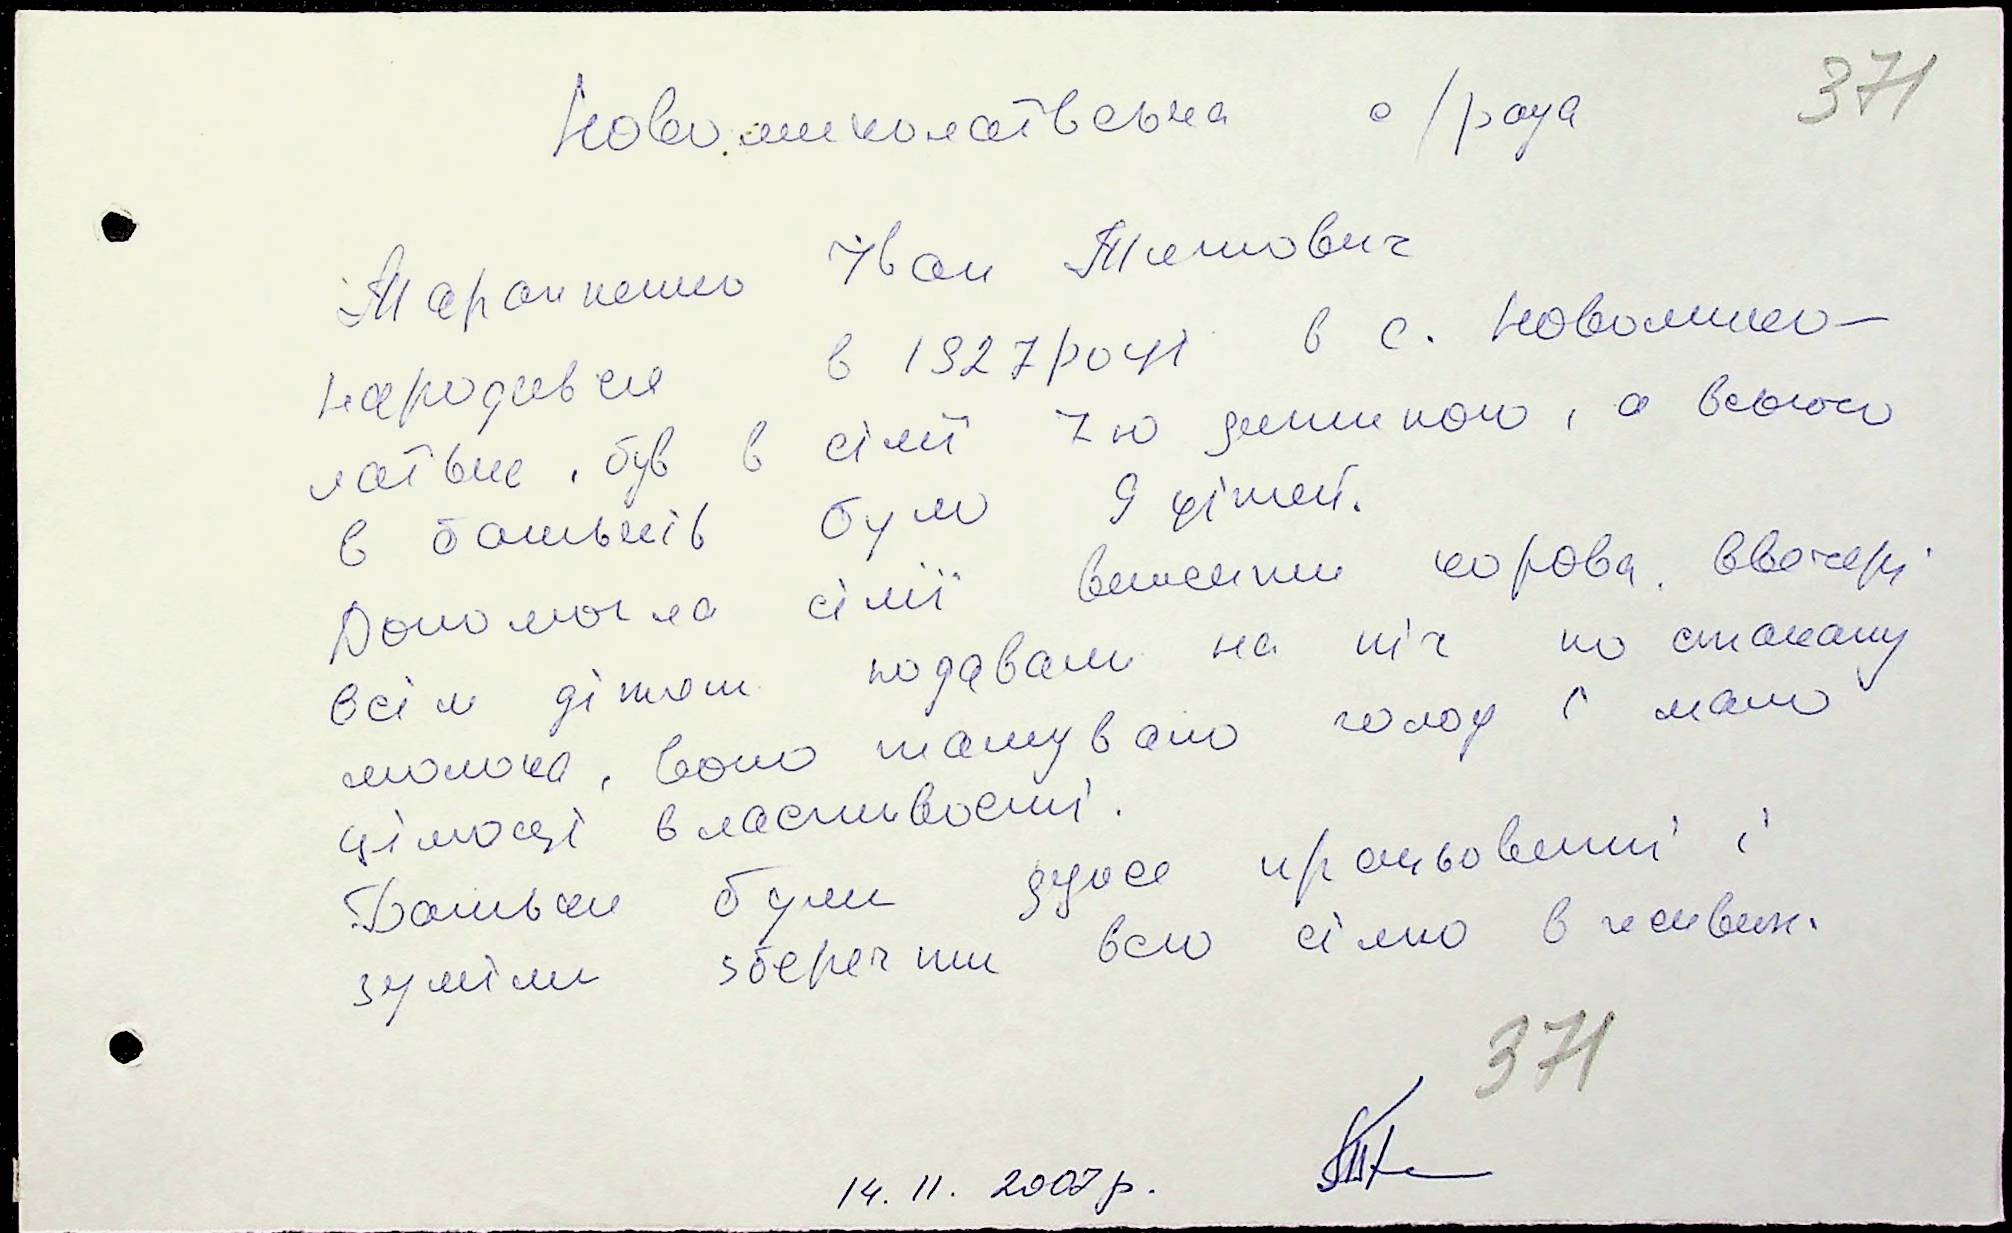 371
Новомиколаївська с/рада
Таранненко Іван Титович
народився в 1927 році в с. Новомико-
лаївне, був в сім'ї 7ю дитиною, а всього
в батьків було 9 дітей.
Допомогла сім'ї вижити корова. Ввечері
всім дітям подавали на піч по стакану
молока, воно тамувало голод і мало
цілющі властивості.
Батьки були дуже працьовиті і
зуміли зберегти всю сім'ю в живих.
371
14.11.2007р.